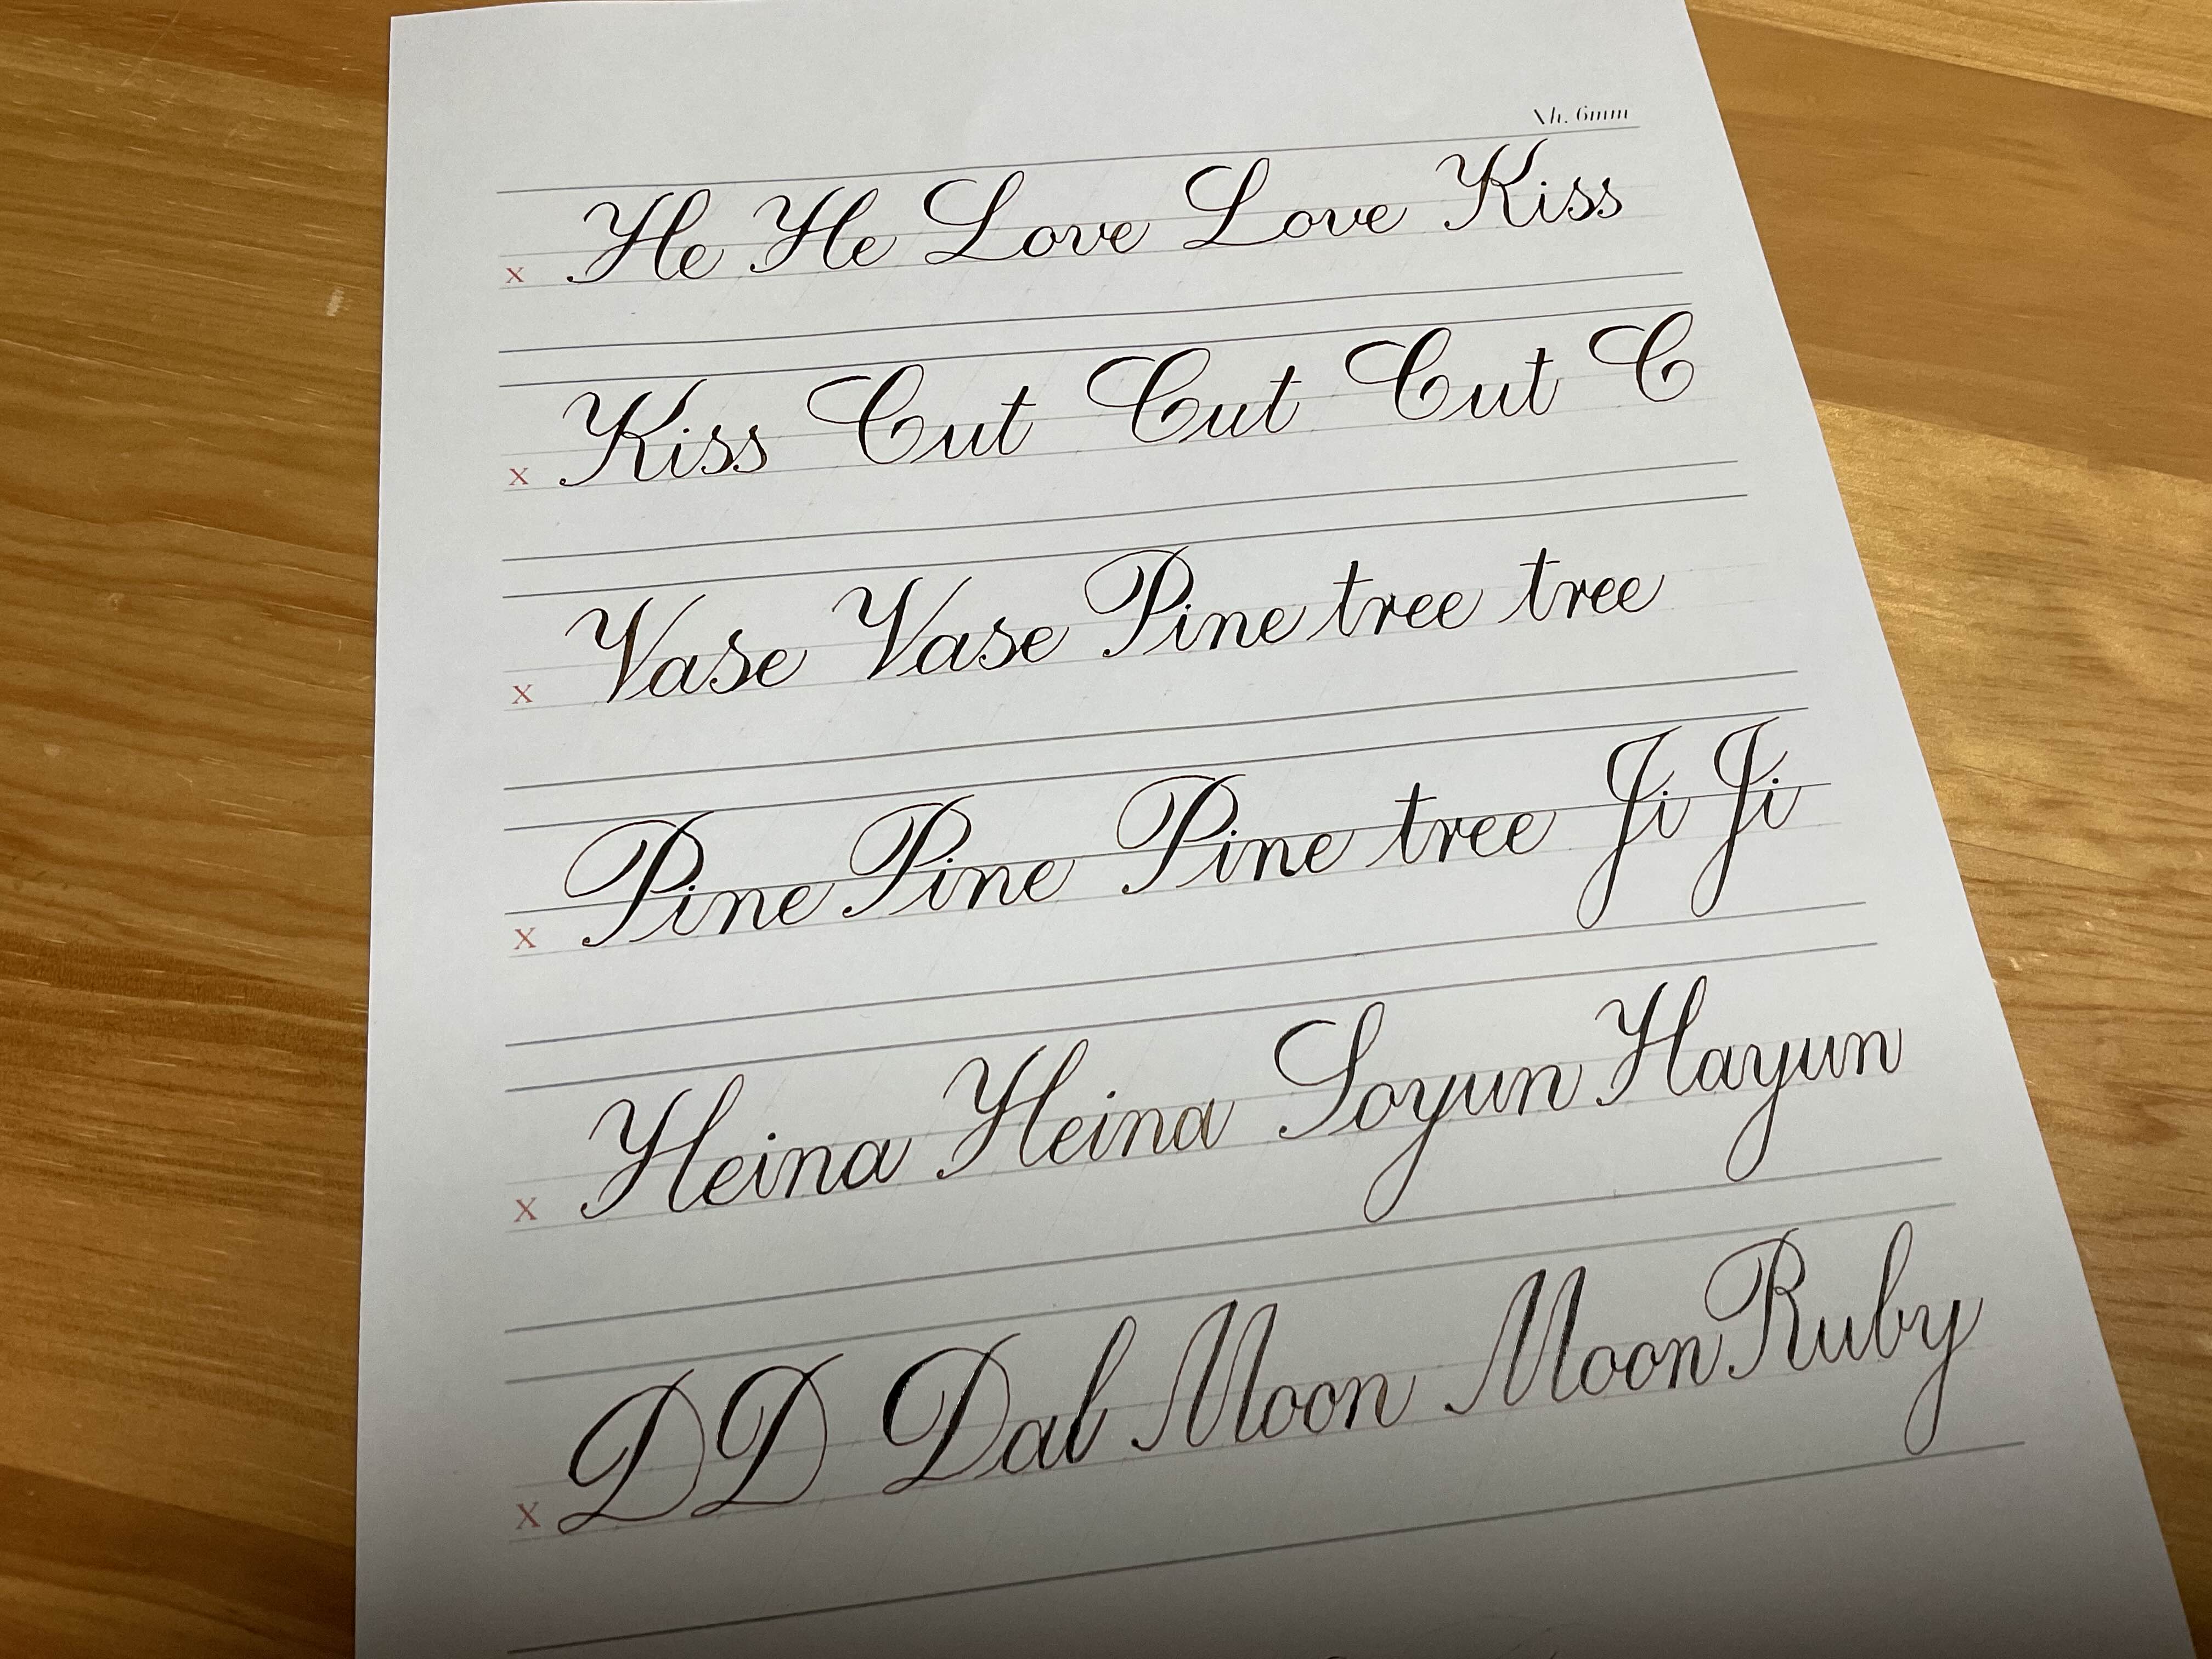 Xh. 6mm
x He He Love Love Kiss
x Kiss Cut Cut Cut C
x Vase Vase Pine tree tree
x Pine Pine Pine tree Ji Ji
x Heina Heina Soyun Hayun
x D D Dal Moon Moon Ruby